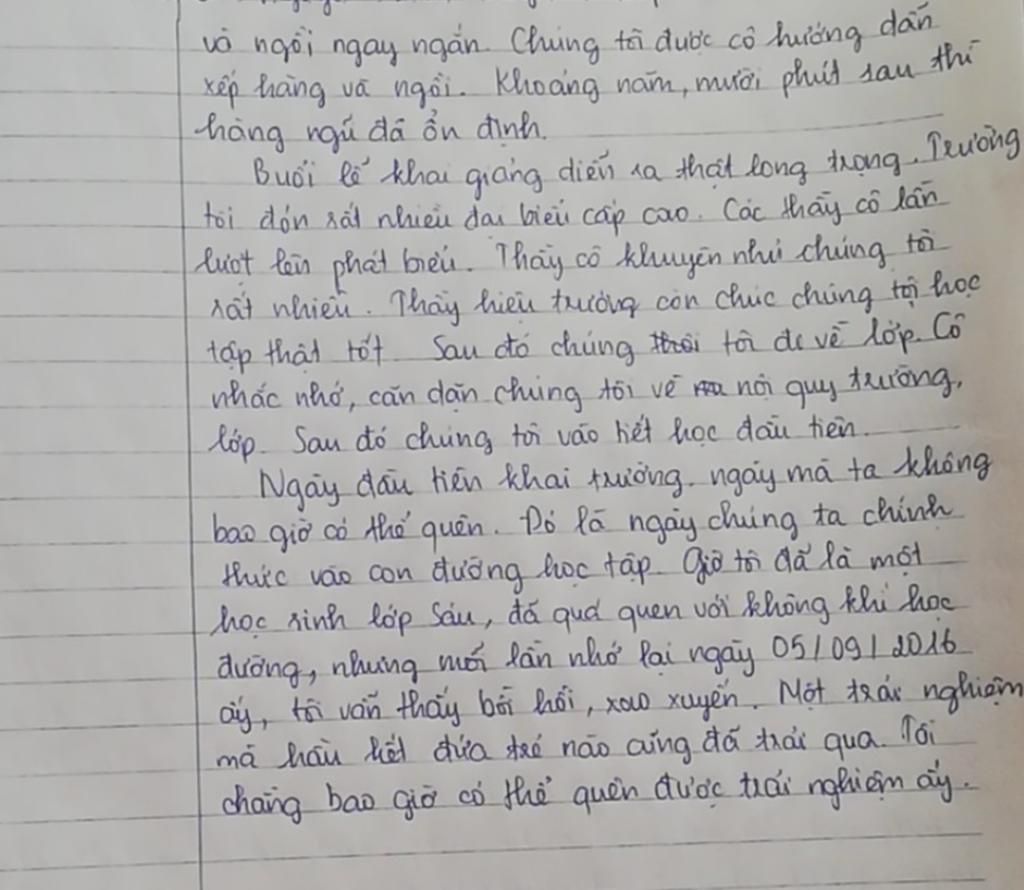 và ngồi ngay ngắn. Chúng tôi được cô hướng dẫn
xếp hàng và ngồi. Khoảng năm, mười phút sau thì
hàng ngũ đã ổn định.
Buổi lễ khai giảng diễn ra thật long trọng. Trường
tôi đón rất nhiều đại biểu cấp cao. Các thầy cô lần
lượt lên phát biểu. Thầy cô khuyên nhủ chúng tôi
rất nhiều. Thầy hiệu trưởng còn chúc chúng tôi học
tập thật tốt. Sau đó chúng tôi đi về lớp. Cô
nhắc nhở, căn dặn chúng tôi về nội quy trường,
lớp. Sau đó chúng tôi vào tiết học đầu tiên.
Ngày đầu tiên khai trường, ngày mà ta không
bao giờ có thể quên. Đó là ngày chúng ta chính
thức vào con đường học tập. Giờ tôi đã là một
học sinh lớp Sáu, đã quá quen với không khí học
đường, nhưng mỗi lần nhớ lại ngày 05/09/2016
ấy, tôi vẫn thấy bồi hồi, xao xuyến. Một trải nghiệm
mà hầu hết đứa trẻ nào cũng đã trải qua. Tôi
chẳng bao giờ có thể quên được trải nghiệm ấy.